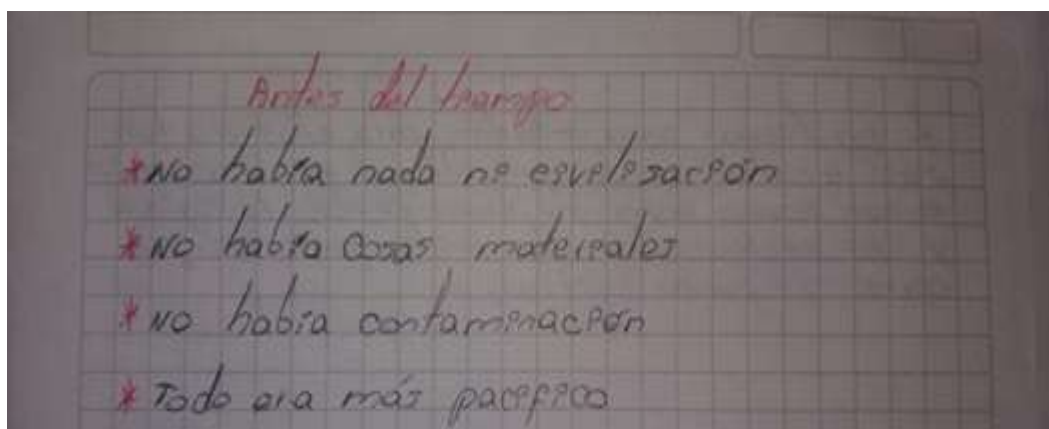 Antes del tiempo
* No habia nada ni civilisación
* No habia cosas materiales
* No habia contaminación
* Todo era más pacifico